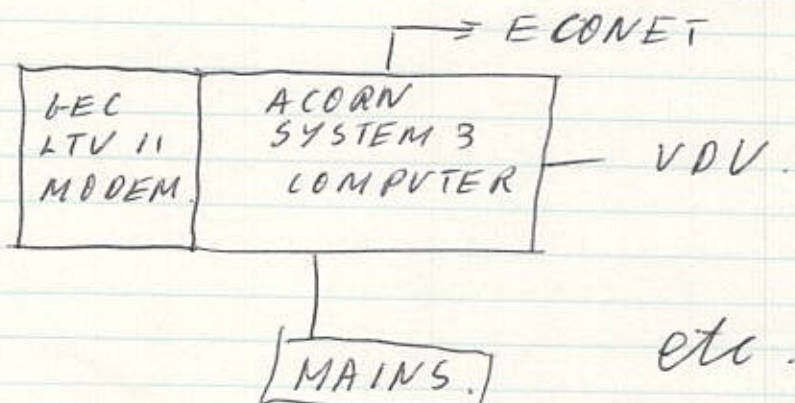 ECONET
GEC
LTU 11
MODEM.
ACORN
SYSTEM 3
COMPUTER
VDU.
MAINS.
etc.